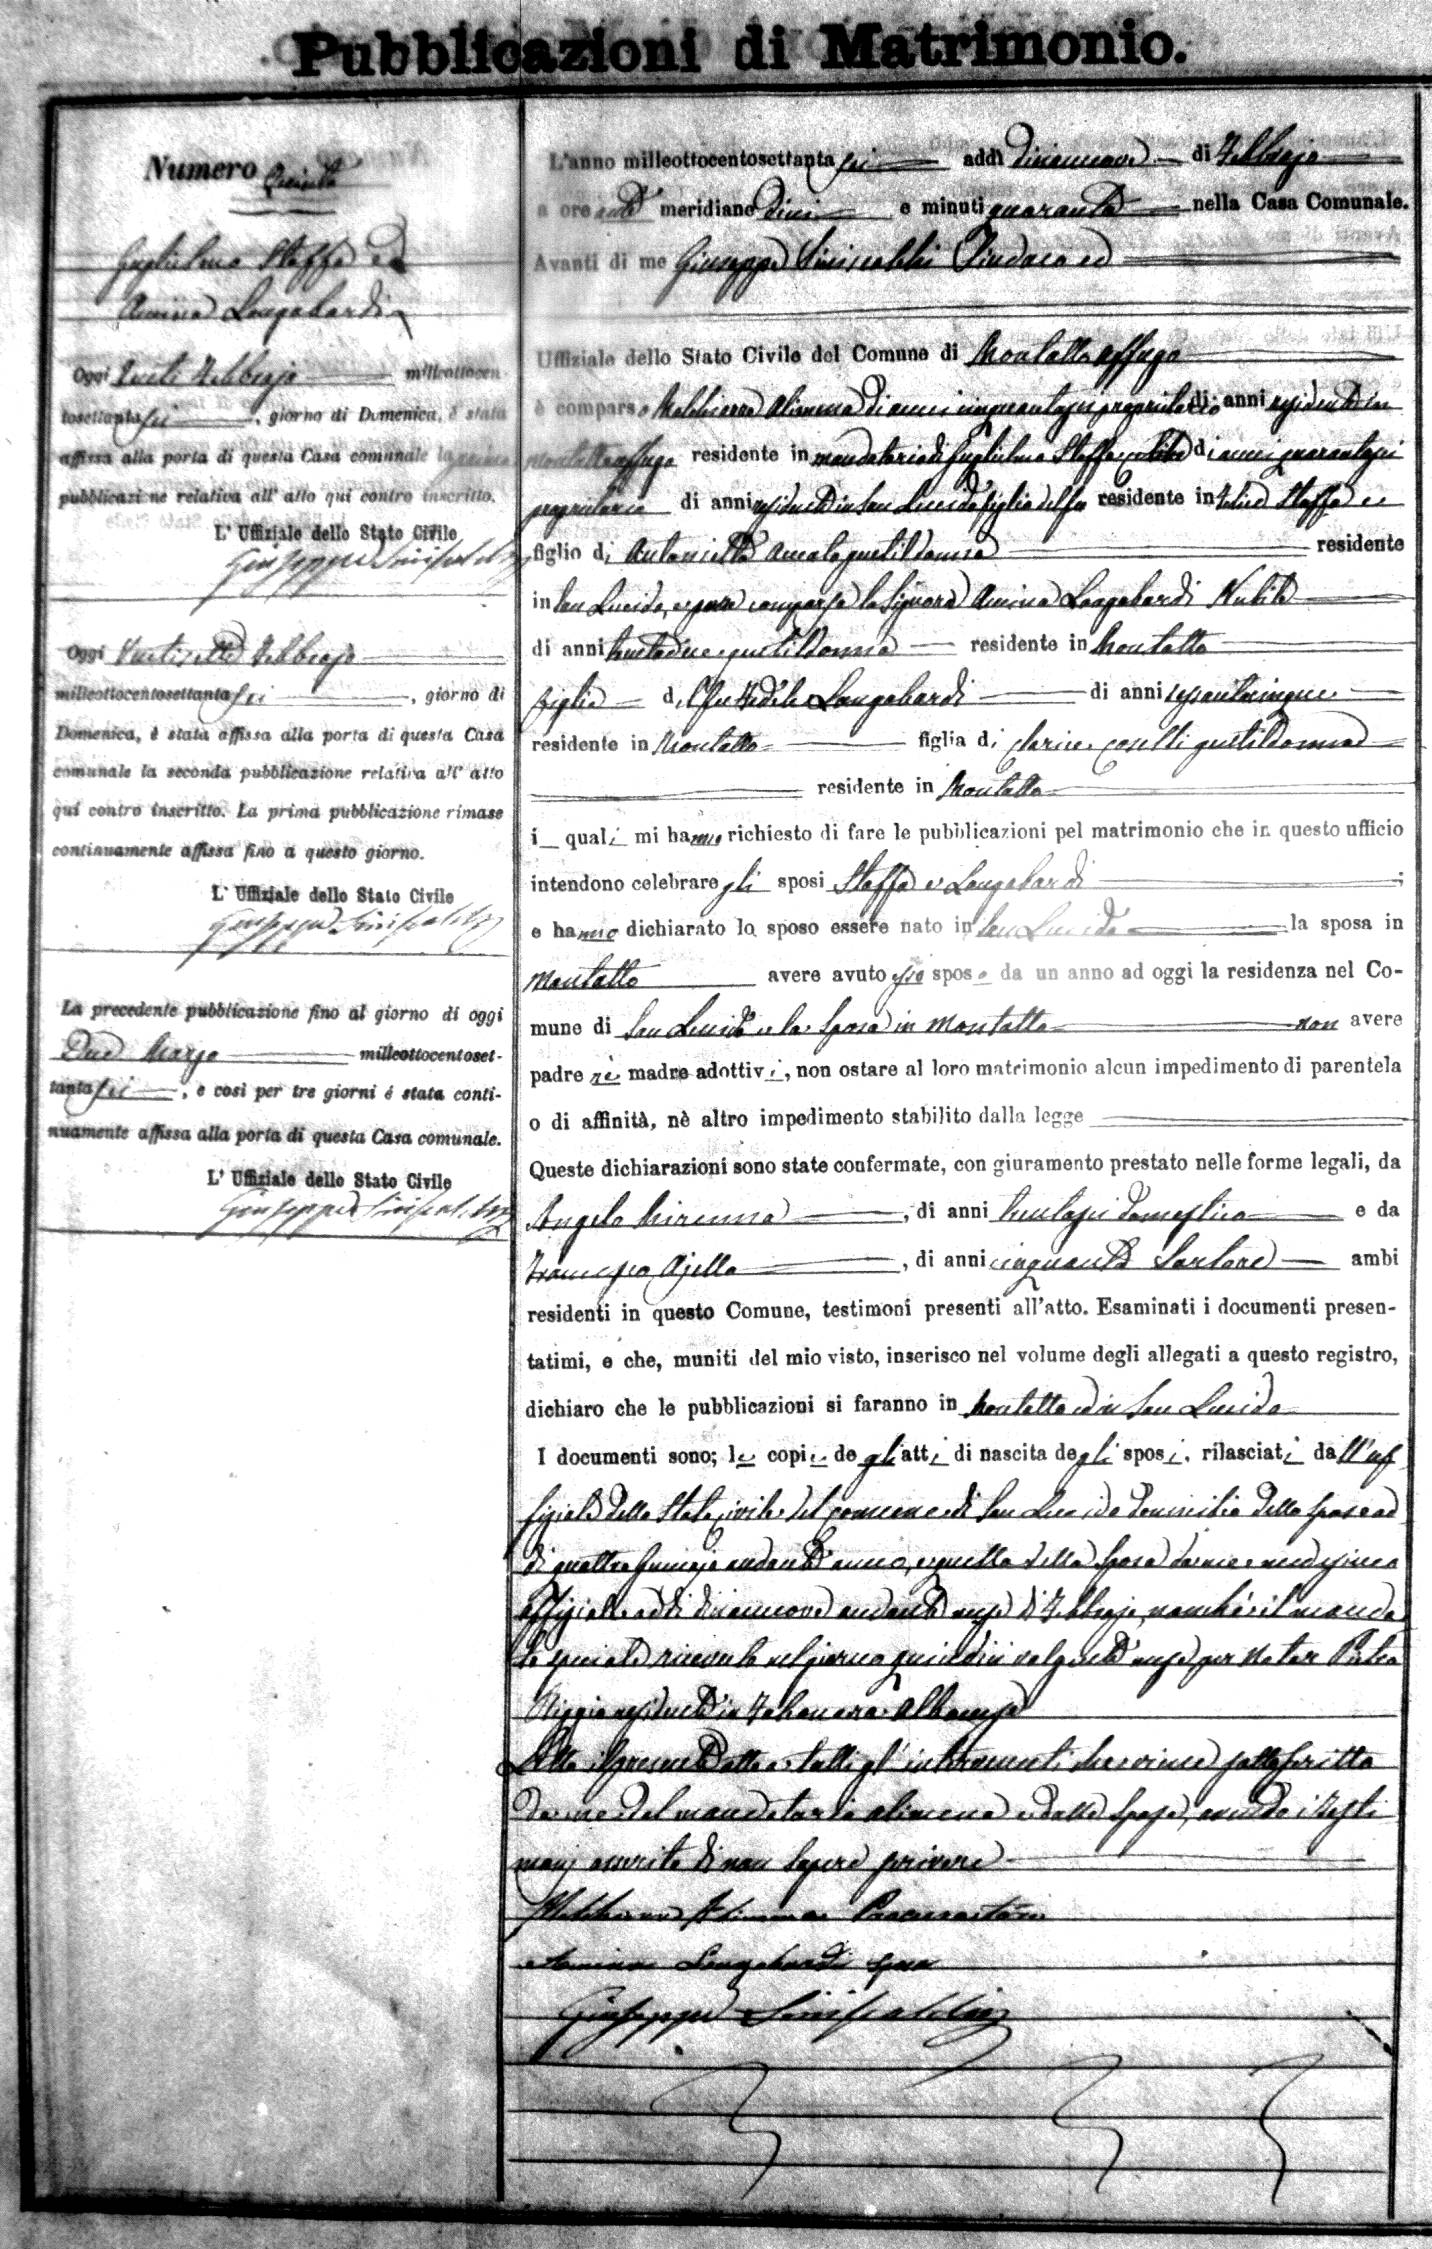 Pubblicazioni di Matrimonio.
Numero Quinto
Guglielmo Staffa ed
Amina Longobardi
Oggi Venti Febbrajo milleottocen-
tosettanta sei, giorno di Domenica, è stata
affissa alla porta di questa Casa comunale la prima
pubblicazione relativa all' atto qui contro inscritto.
L' Uffiziale dello Stato Civile
Giuseppe Siniscalchi
Oggi Ventisette Febbrajo
milleottocentosettanta sei, giorno di
Domenica, è stata affissa alla porta di questa Casa
comunale la seconda pubblicazione relativa all' atto
qui contro inscritto. La prima pubblicazione rimase
continuamente affissa fino a questo giorno.
L' Uffiziale dello Stato Civile
Giuseppe Siniscalchi
La precedente pubblicazione fino al giorno di oggi
Due Marzo milleottocentoset-
tanta sei, e cosi per tre giorni é stata conti-
nuamente affissa alla porta di questa Casa comunale.
L' Uffiziale dello Stato Civile
Giuseppe Siniscalchi
L'anno milleottocentosettanta sei addì diciannove di Febbrajo
a ore anti meridiane dieci e minuti quaranta nella Casa Comunale.
Avanti di me Giuseppe Siniscalchi Sindaco ed
Uffiziale dello Stato Civile del Comune di Montalto Uffugo
è comparso Melchiorre Alimena di anni cinquantasei proprietario di anni residente in
Montalto Uffugo residente in mandatario di Guglielmo Staffa celibe di anni quarantasei
proprietario di anni residente in San Lucido figlio del fu residente in Felice Staffa e
figlio di Antonietta Amato gentildonna residente
in San Lucido, e pure comparsa la Signora Amina Longobardi Nubile
di anni trentadue gentildonna residente in Montalto
figlia del fu Fedele Longobardi di anni sessantacinque
residente in Montalto figlia di Clarice Coselli gentildonna
residente in Montalto
i quali mi hanno richiesto di fare le pubblicazioni pel matrimonio che in questo ufficio
intendono celebrare gli sposi Staffa e Longobardi ;
e hanno dichiarato lo sposo essere nato in San Lucido la sposa in
Montalto avere avuto esso sposo da un anno ad oggi la residenza nel Co-
mune di San Lucido e la Sposa in Montalto non avere
padre nè madre adottivi, non ostare al loro matrimonio alcun impedimento di parentela
o di affinità, nè altro impedimento stabilito dalla legge
Queste dichiarazioni sono state confermate, con giuramento prestato nelle forme legali, da
Angelo Mirenna, di anni trentasei domestico e da
Francesco Ajello, di anni cinquanta Sartore ambi
residenti in questo Comune, testimoni presenti all'atto. Esaminati i documenti presen-
tatimi, e che, muniti del mio visto, inserisco nel volume degli allegati a questo registro,
dichiaro che le pubblicazioni si faranno in Montalto ed in San Lucido
I documenti sono; le copie degli atti di nascita degli sposi, rilasciati dall'uf
fiziale dello Stato civile del comune di San Lucido domicilio dello sposo ad
di quattro Gennajo andante anno, e quella della Sposa da me medesimo
Uffiziale addì diciannove andante mese di Febbrajo, nonchè il manda
to speciale ricevuto nel giorno quindici volgente mese per Notar
residente in Falconara Albanese
Letto il presente atto a tutti gl' intervenuti che viene sottoscritto
da me del mandatario Alimena e dalla Sposa, avendo i Testi
monj asserito di non sapere scrivere
Melchiorre Alimena Procuratore
Amina Longobardi sposa
Giuseppe Siniscalchi